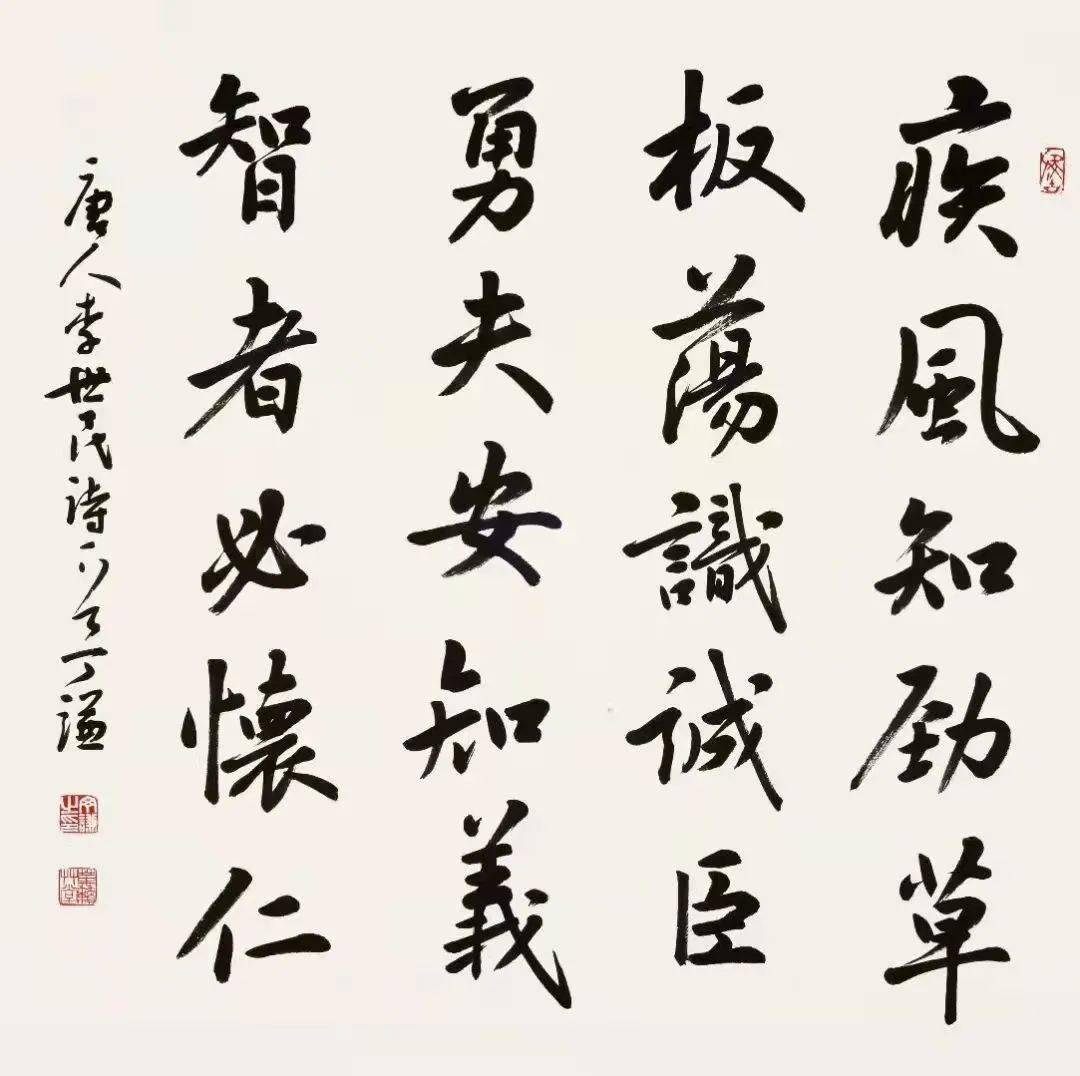 疾風知勁草
板蕩識誠臣
勇夫安知義
智者必懷仁
唐人李世民詩一首 謙